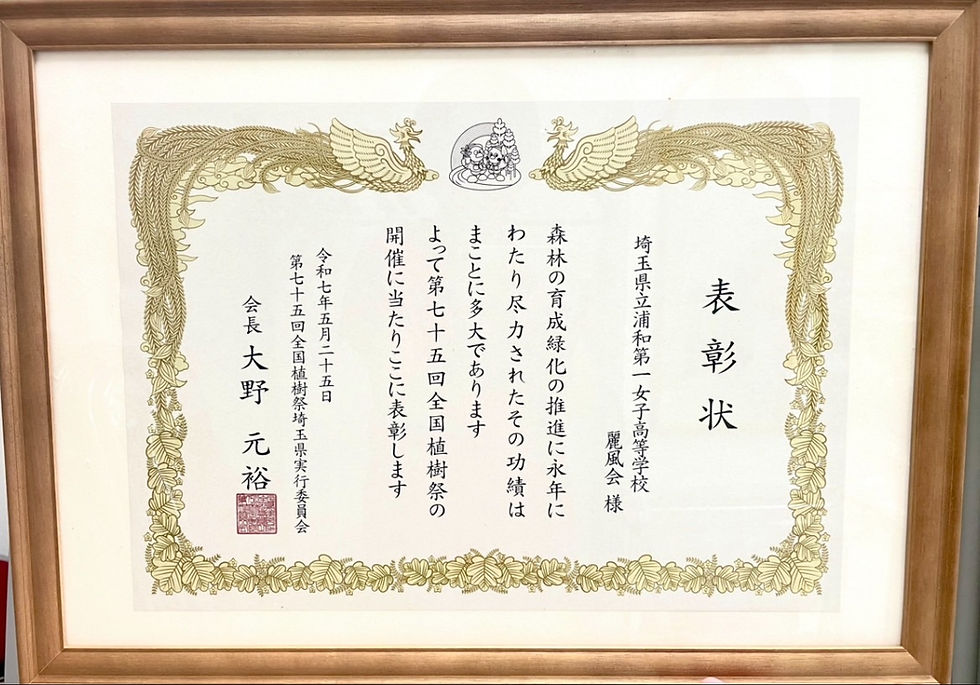 表彰状
埼玉県立浦和第一女子高等学校
麗風会 様
森林の育成緑化の推進に永年に
わたり尽力されたその功績は
まことに多大であります
よって第七十五回全国植樹祭の
開催に当たりここに表彰します
令和七年五月二十五日
第七十五回全国植樹祭埼玉県実行委員会
会長 大野 元裕